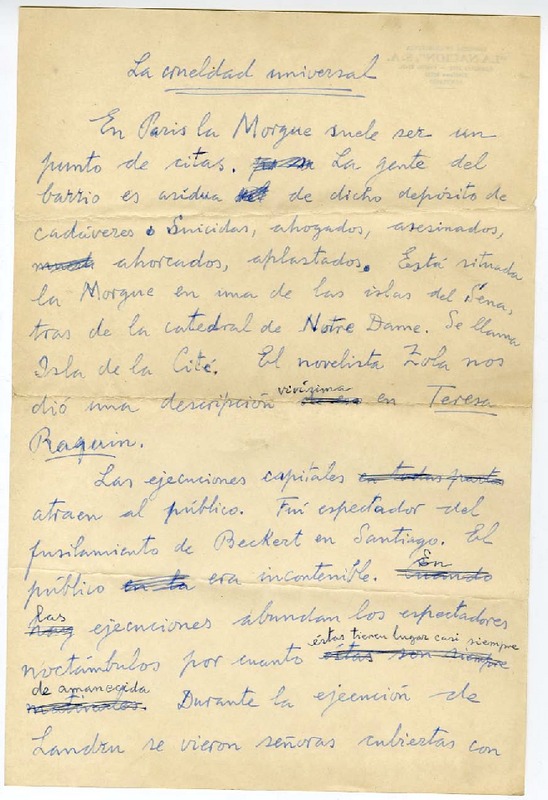 La crueldad universal
En Paris la Morgue suele ser un
punto de citas. La gente del
barrio es asidua de dicho depósito de
cadáveres. Suicidas, ahogados, asesinados,
ahorcados, aplastados. Está situada
la Morgue en una de las islas del Sena,
tras de la catedral de Notre Dame. Se llama
Isla de la Cité. El novelista Zola nos
dió una descripción vivísima en Teresa
Raquin.
Las ejecuciones capitales en todas partes
atraen al público. Fuí espectador del
fusilamiento de Beckert en Santiago. El
público en la era incontenible. Cuando En
hay las ejecuciones abundan los espectadores
noctámbulos por cuanto éstas son siempre éstas tienen lugar casi siempre
matinales. de amanecida Durante la ejecución de
Landru se vieron señoras cubiertas con